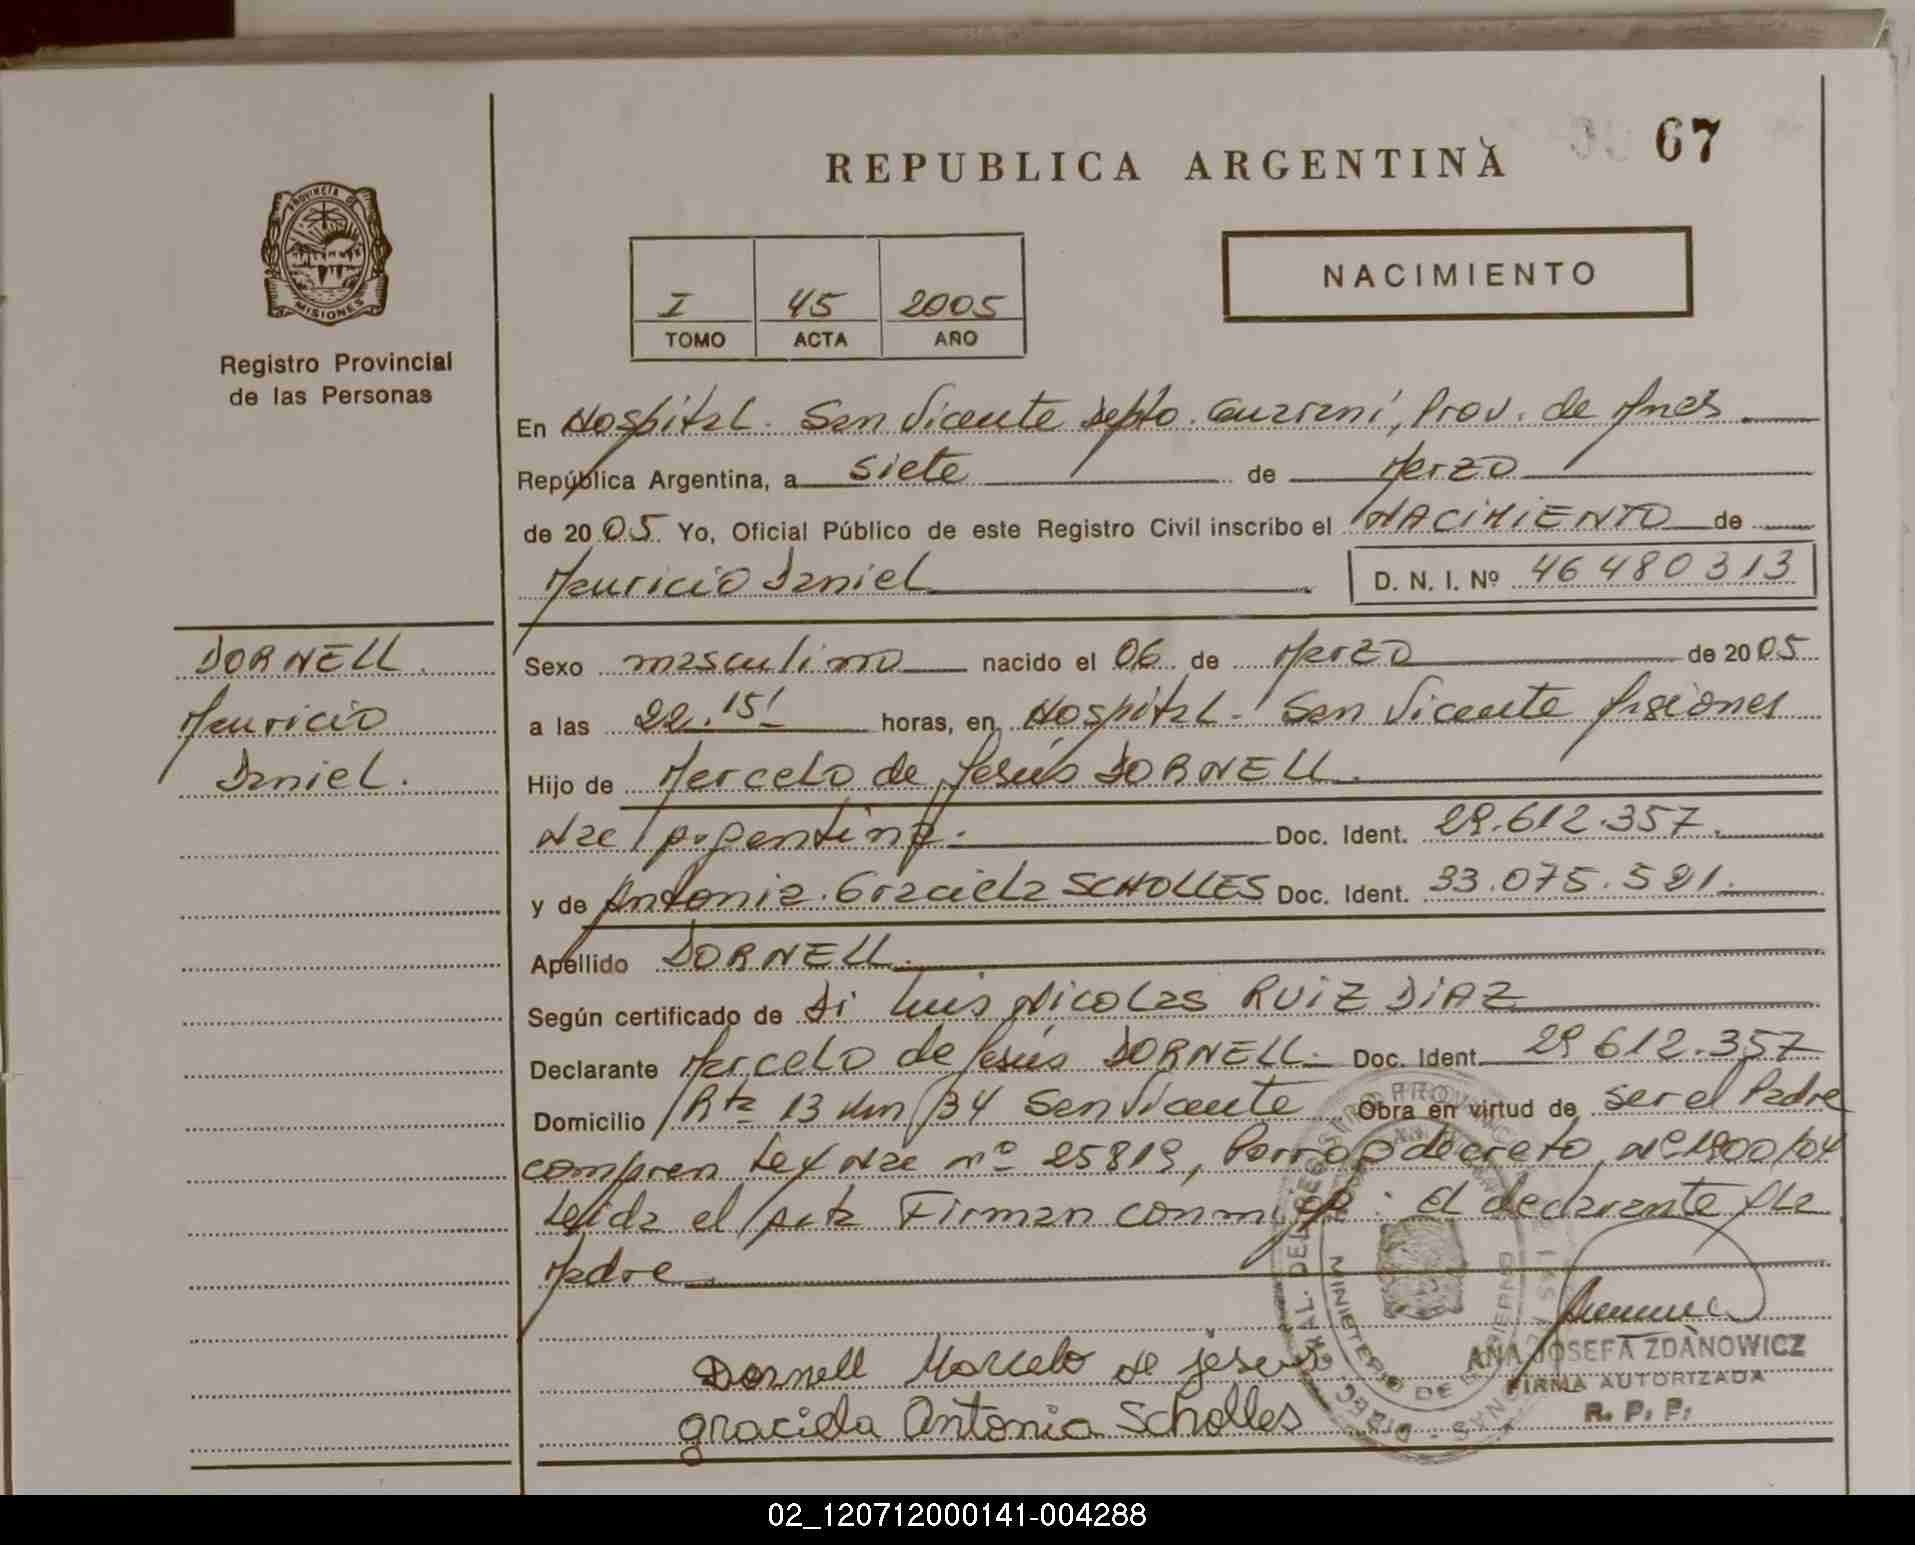 67
REPUBLICA ARGENTINA
PROVINCIA DE
MISIONES
Registro Provincial
de las Personas
NACIMIENTO
I 45 2005
TOMO ACTA AÑO
En Hospital. San Vicente Depto. Guaraní, Prov. de Mnes
República Argentina, a siete de Marzo
de 2005 Yo, Oficial Público de este Registro Civil inscribo el NACIMIENTO de
Mauricio Daniel D. N. I. Nº 46480313
DORNELL
Mauricio
Daniel.
Sexo masculino nacido el 06 de Marzo de 2005
a las 22.15' horas, en Hospital - San Vicente Misiones
Hijo de Marcelo de Jesús DORNELL
Nac Argentina. Doc. Ident. 29.612.357.
y de Antonia Graciela SCHOLLES Doc. Ident. 33.075.521.
Apellido DORNELL.
Según certificado de Di Luis Nicolas RUIZ DIAZ
Declarante Marcelo de Jesús DORNELL. Doc. Ident. 29 612.357
Domicilio Rta 13 Km 34 San Vicente Obra en virtud de ser el Padre
Ley Nac nº 25819, decreto Nº 1900/04
Leida el Acta Firman conmigo: el declarante y La
Madre
Dornell Marcelo de jesus
graciela Antonia Scholles
ANA JOSEFA ZDANOWICZ
FIRMA AUTORIZADA
R. P. P.
MINISTERIO DE GOBIERNO
02_120712000141-004288